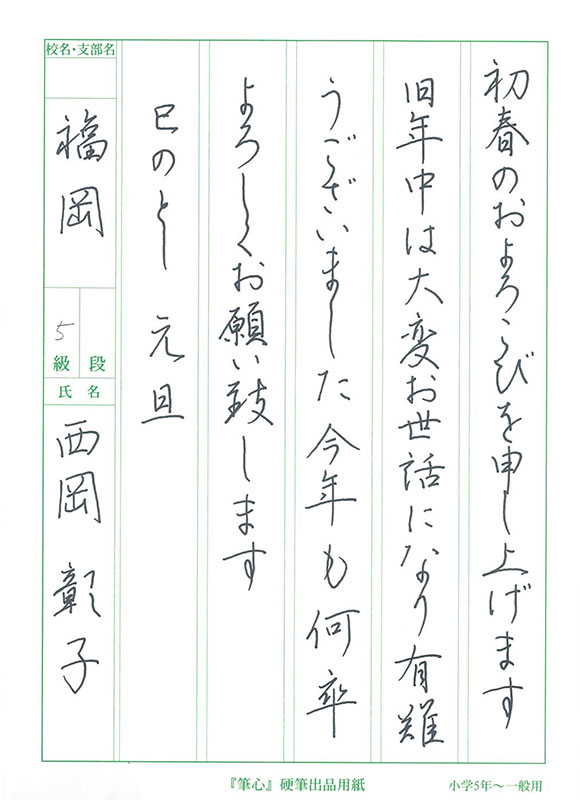 初春のおよろこびを申し上げます
旧年中は大変お世話になり有難
うございました今年も何卒
よろしくお願い致します
巳のとし 元旦
校名・支部名
福岡
段
5級
氏名
西岡彰子
『筆心』硬筆出品用紙
小学5年〜一般用